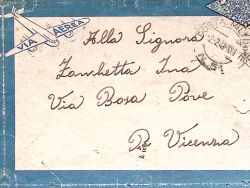 VIA AEREA
Alla Signora
Zanchetta Ina
Via Bosa Pove
Vicenza